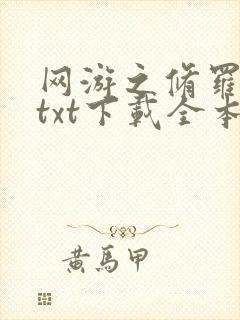 网游之脩羅
txt下載全本
黃馬甲